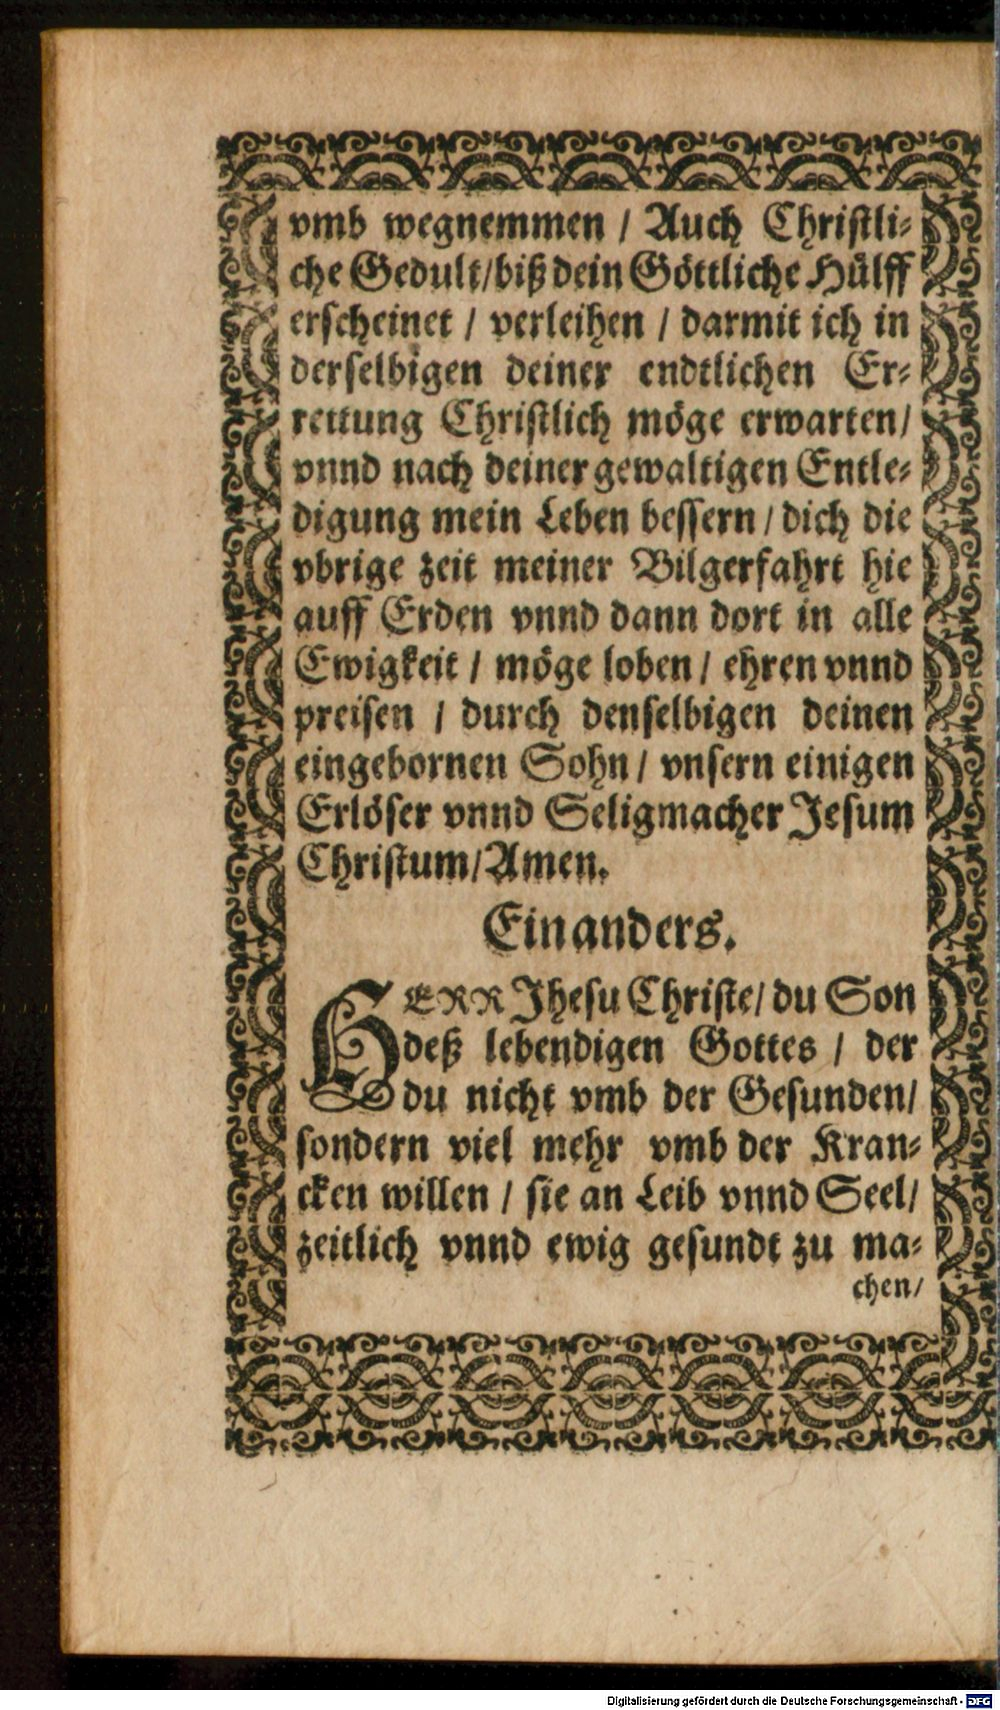 vmb wegnemmen / Auch Christli⸗
che Gedult/ biß dein Göttliche Hülff
erscheinet / verleihen / darmit ich in
derselbigen deiner endtlichen Er⸗
rettung Christlich möge erwarten/
vnnd nach deiner gewaltigen Entle⸗
digung mein Leben bessern / dich die
vbrige zeit meiner Bilgerfahrt hie
auff Erden vnnd dann dort in alle
Ewigkeit / möge loben / ehren vnnd
preisen / durch denselbigen deinen
eingebornen Sohn / vnsern einigen
Erlöser vnnd Seligmacher Jesum
Christum/ Amen.
Ein anders.
HERR Jhesu Christe/ du Son
deß lebendigen Gottes / der
du nicht vmb der Gesunden/
sondern viel mehr vmb der Kran⸗
cken willen / sie an Leib vnnd Seel/
zeitlich vnnd ewig gesundt zu ma⸗
chen/
Digitalisierung gefördert durch die Deutsche Forschungsgemeinschaft - DFG